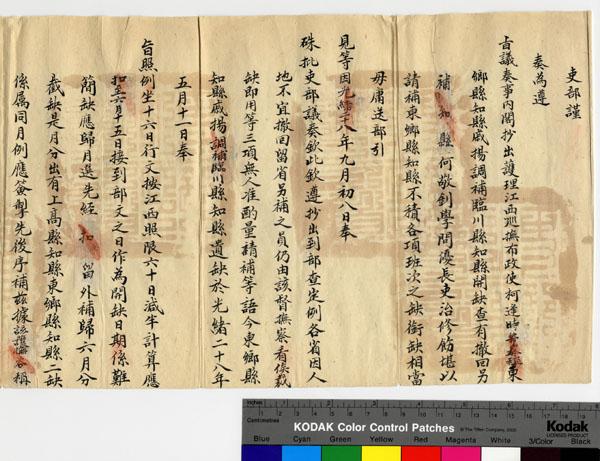 吏部謹
奏為遵
旨議奏事內閣抄出護理江西巡撫布政使柯逢時奏東
鄉縣知縣戚揚調補臨川縣知縣開缺查有撤回另
補知縣何敬釗學問優長吏治修飭堪以
請補東鄉縣知縣不積各項班次之缺銜缺相當
毋庸送部引
見等因光緒二十八年九月初八日奉
硃批吏部議奏欽此欽遵抄出到部查定例各省因人
地不宜撤回留省另補之員仍由該督撫察看
缺即用等三項無人准酌量請補等語今東鄉縣
知縣戚揚調補臨川縣知縣遺缺於光緒二十八年
五月十一日奉
旨照例坐十六日行文按江西照限六十日減半計算應
扣至六月十五日接到部文之日作為開缺日期係難
簡缺應歸月選先經扣留外補歸六月分
截缺是月分出有上高縣知縣東鄉縣知縣二缺
係屬同月例應簽掣先後序補茲據該護撫咨稱
inches 1 2 3 4 5 6 7 8
Centimetres 1 2 3 4 5 6 7 8 9 10 11 12 13 14 15 16 17 18 19
KODAK Color Control Patches
© The Tiffen Company, 2000
Kodak
LICENSED PRODUCT
Blue Cyan Green Yellow Red Magenta White 3/Color Black